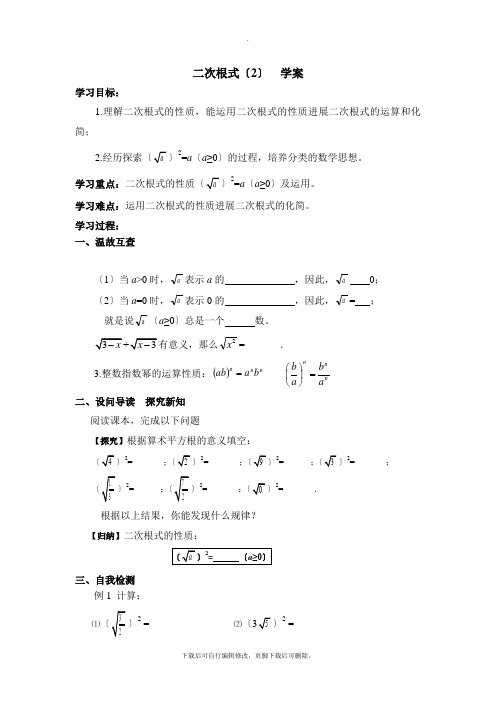 二次根式〔2〕 学案
学习目标：
1.理解二次根式的性质，能运用二次根式的性质进展二次根式的运算和化
简；
2.经历探索〔√a〕²=a〔a≥0〕的过程，培养分类的数学思想。
学习重点：二次根式的性质〔√a〕²=a〔a≥0〕及运用。
学习难点：运用二次根式的性质进展二次根式的化简。
学习过程：
一、温故互查
〔1〕当 a>0 时，√a 表示 a 的            ，因此，√a     0；
〔2〕当 a=0 时，√a 表示 0 的            ，因此，√a =    ；
就是说√a〔a≥0〕总是一个      数。
√3−x+√x−3有意义，那么√x² =        .
3.整数指数幂的运算性质：(ab)ⁿ = aⁿbⁿ (b/a)ⁿ = bⁿ/aⁿ
二、设问导读 探究新知
阅读课本，完成以下问题
【探究】根据算术平方根的意义填空：
〔√4〕²=      ；〔√2〕²=      ；〔√9〕²=      ；〔√3〕²=      ；
〔√1/3〕²=      ；〔√ /2〕²=      ；〔√0〕²=      .
根据以上结果，你能发现什么规律？
【归纳】二次根式的性质：
（√a）²=       （a≥0）
三、自我检测
例 1 计算：
⑴〔√3/2〕² = ⑵〔3√5〕² =
下载后可自行编辑修改，页脚下载后可删除。